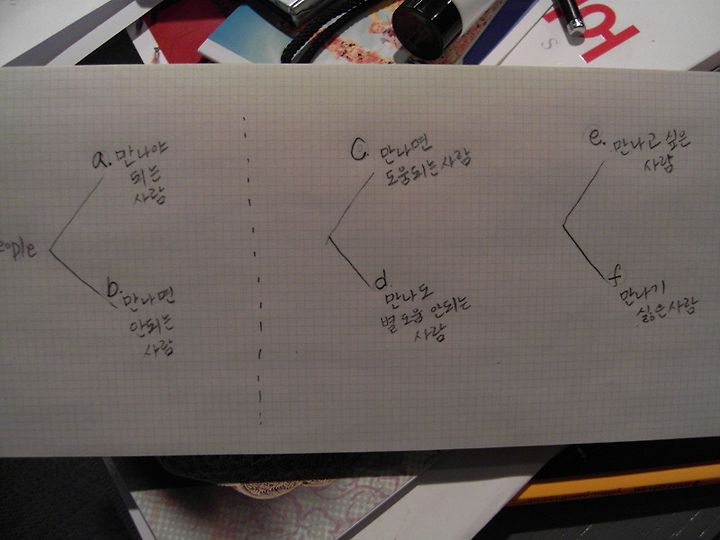 a. 만나야
되는
사람
eople
b. 만나면
안되는
사람
c. 만나면
도움되는 사람
d
만나도
별 도움 안되는
사람
e. 만나고 싶은
사람
f
만나기
싫은 사람